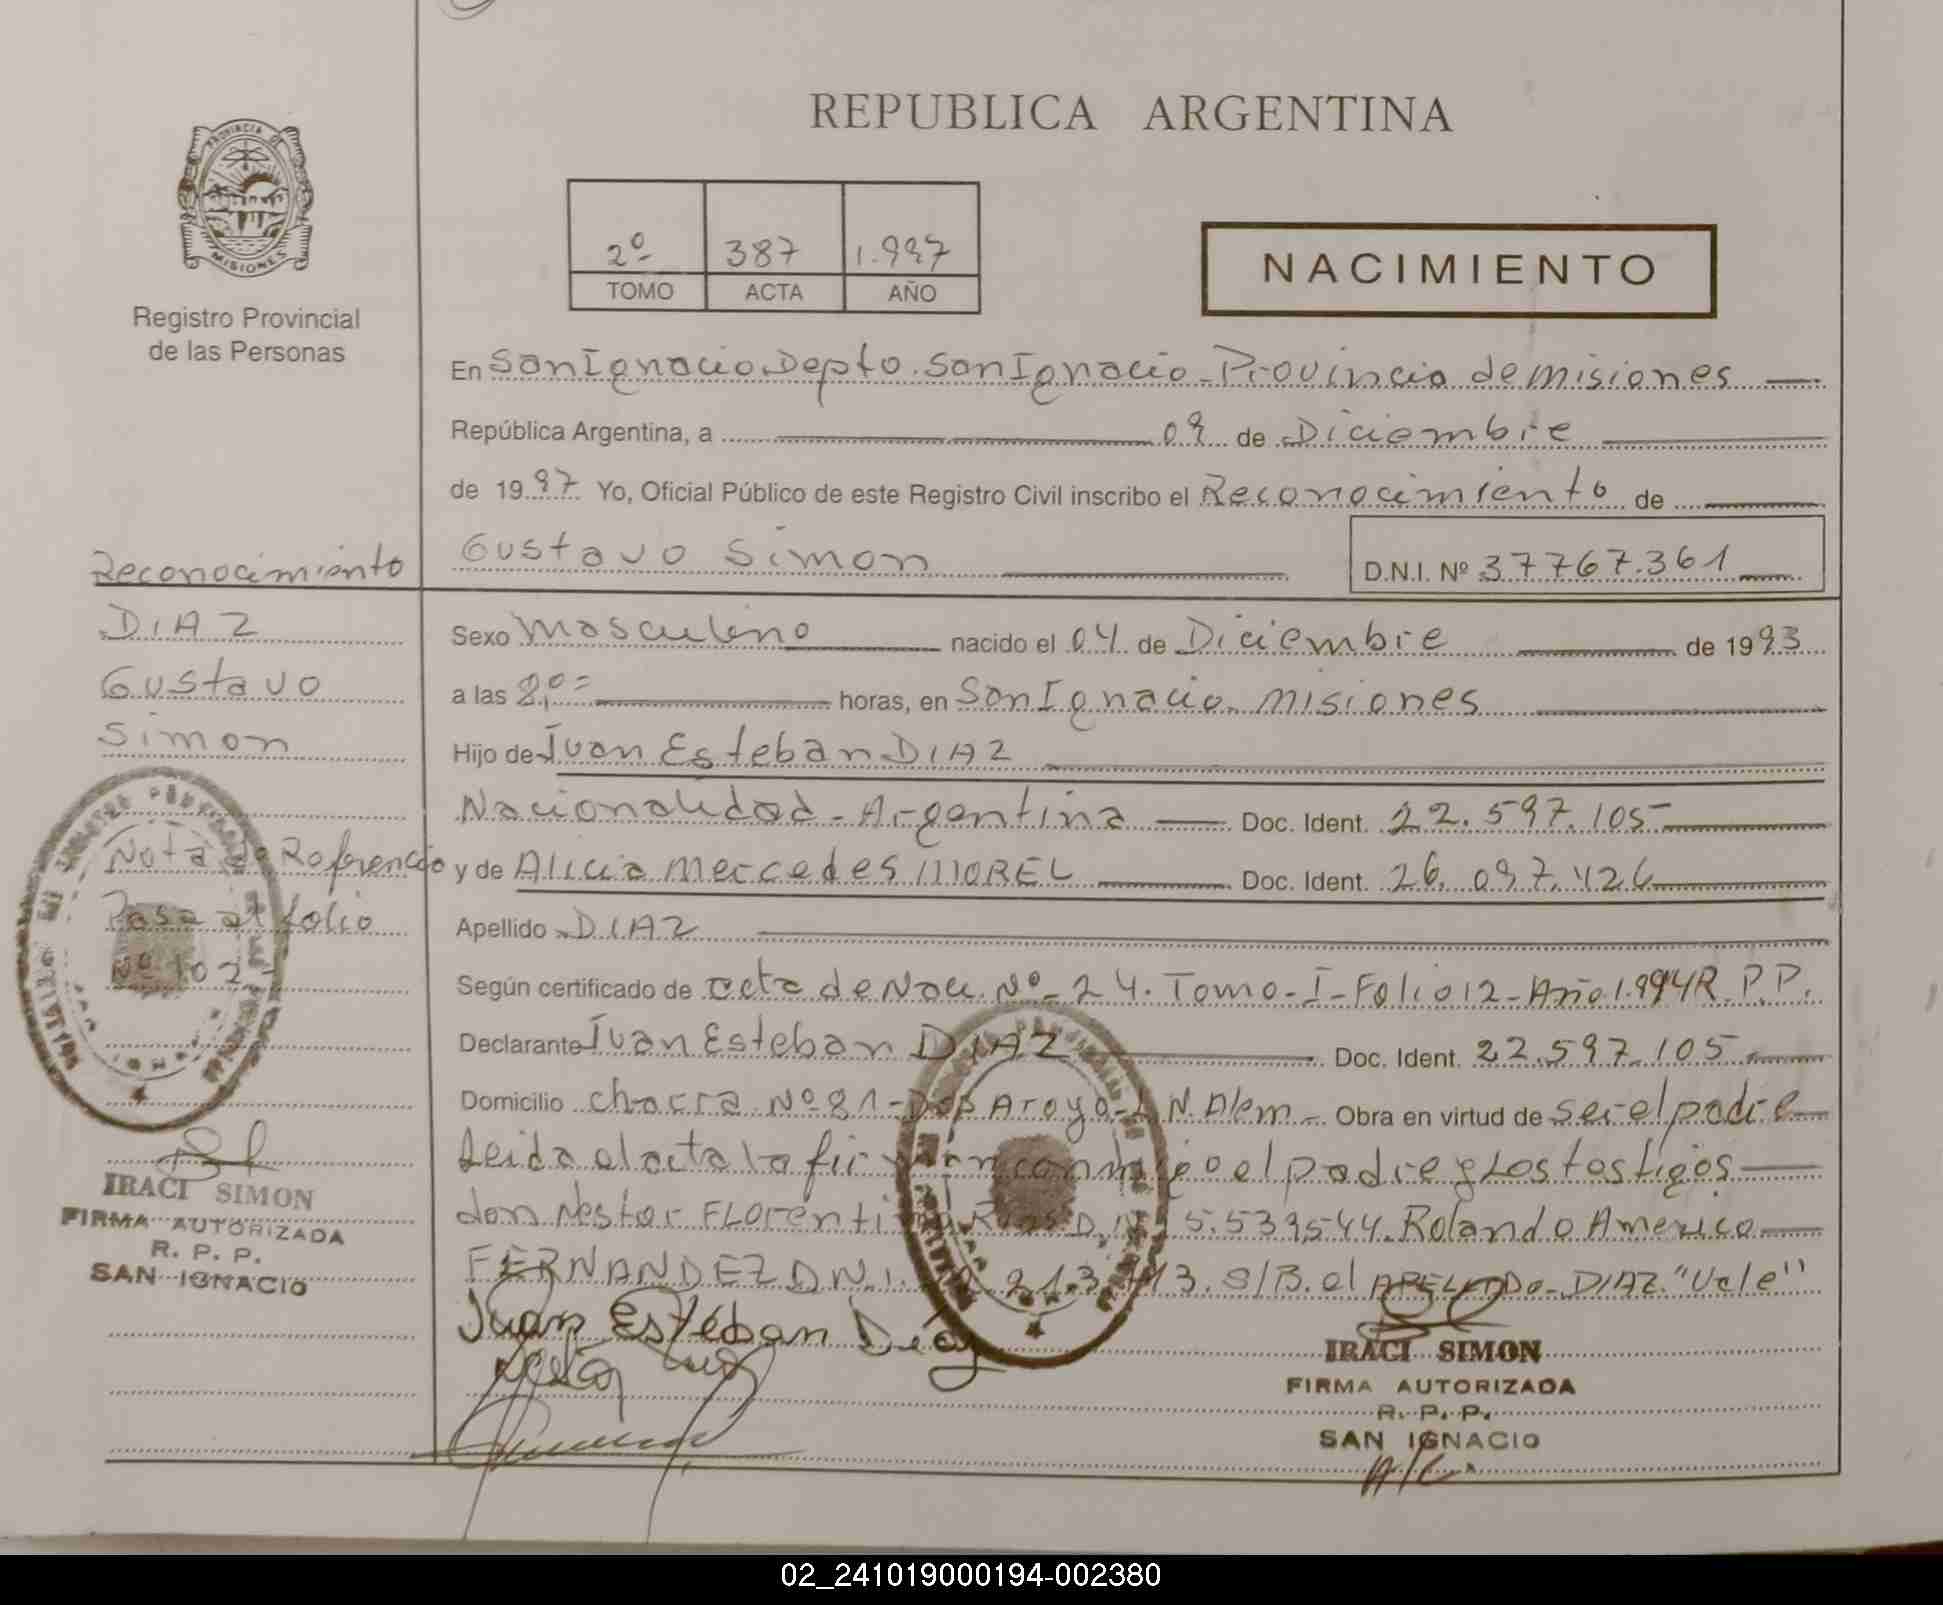 REPUBLICA ARGENTINA
PROVINCIA DE
MISIONES
Registro Provincial
de las Personas
2º 387 1.997
TOMO ACTA AÑO
NACIMIENTO
En San Ignacio Depto. San Ignacio - Provincia de misiones
República Argentina, a 09 de Diciembre
de 1997 Yo, Oficial Público de este Registro Civil inscribo el Reconocimiento de
Gustavo Simon D.N.I. Nº 37767.361
Reconocimiento
DIAZ
Gustavo
Simon
Nota de Referencia
Pasa al folio
Nº 102-
IRACI SIMON
FIRMA AUTORIZADA
R. P. P.
SAN IGNACIO
Sexo masculino nacido el 04 de Diciembre de 1993
a las horas, en San Ignacio. misiones
Hijo de Juan Esteban DIAZ
Nacionalidad - Argentina Doc. Ident. 22.597.105
y de Alicia Mercedes MOREL Doc. Ident. 26.097.426
Apellido DIAZ
Según certificado de acta de Nac. Nº- 24. Tomo - I - Folio 12 - Año 1.994 R.P.P.
Declarante Juan Esteban DIAZ Doc. Ident. 22.597.105
Domicilio chacra Nº 81 - Aroyo - L N. Alem - Obra en virtud de ser el padre
Leida el acta la firman conmigo el padre y Los testigos
don Nestor FLorentino D.N.I. 5.539544. Rolando Americo
FERNANDEZ D.N.I. S/B. el APELLIDO - DIAZ. "Vale"
Juan Esteban Diaz
IRACI SIMON
FIRMA AUTORIZADA
R. P. P.
SAN IGNACIO
02_241019000194-002380